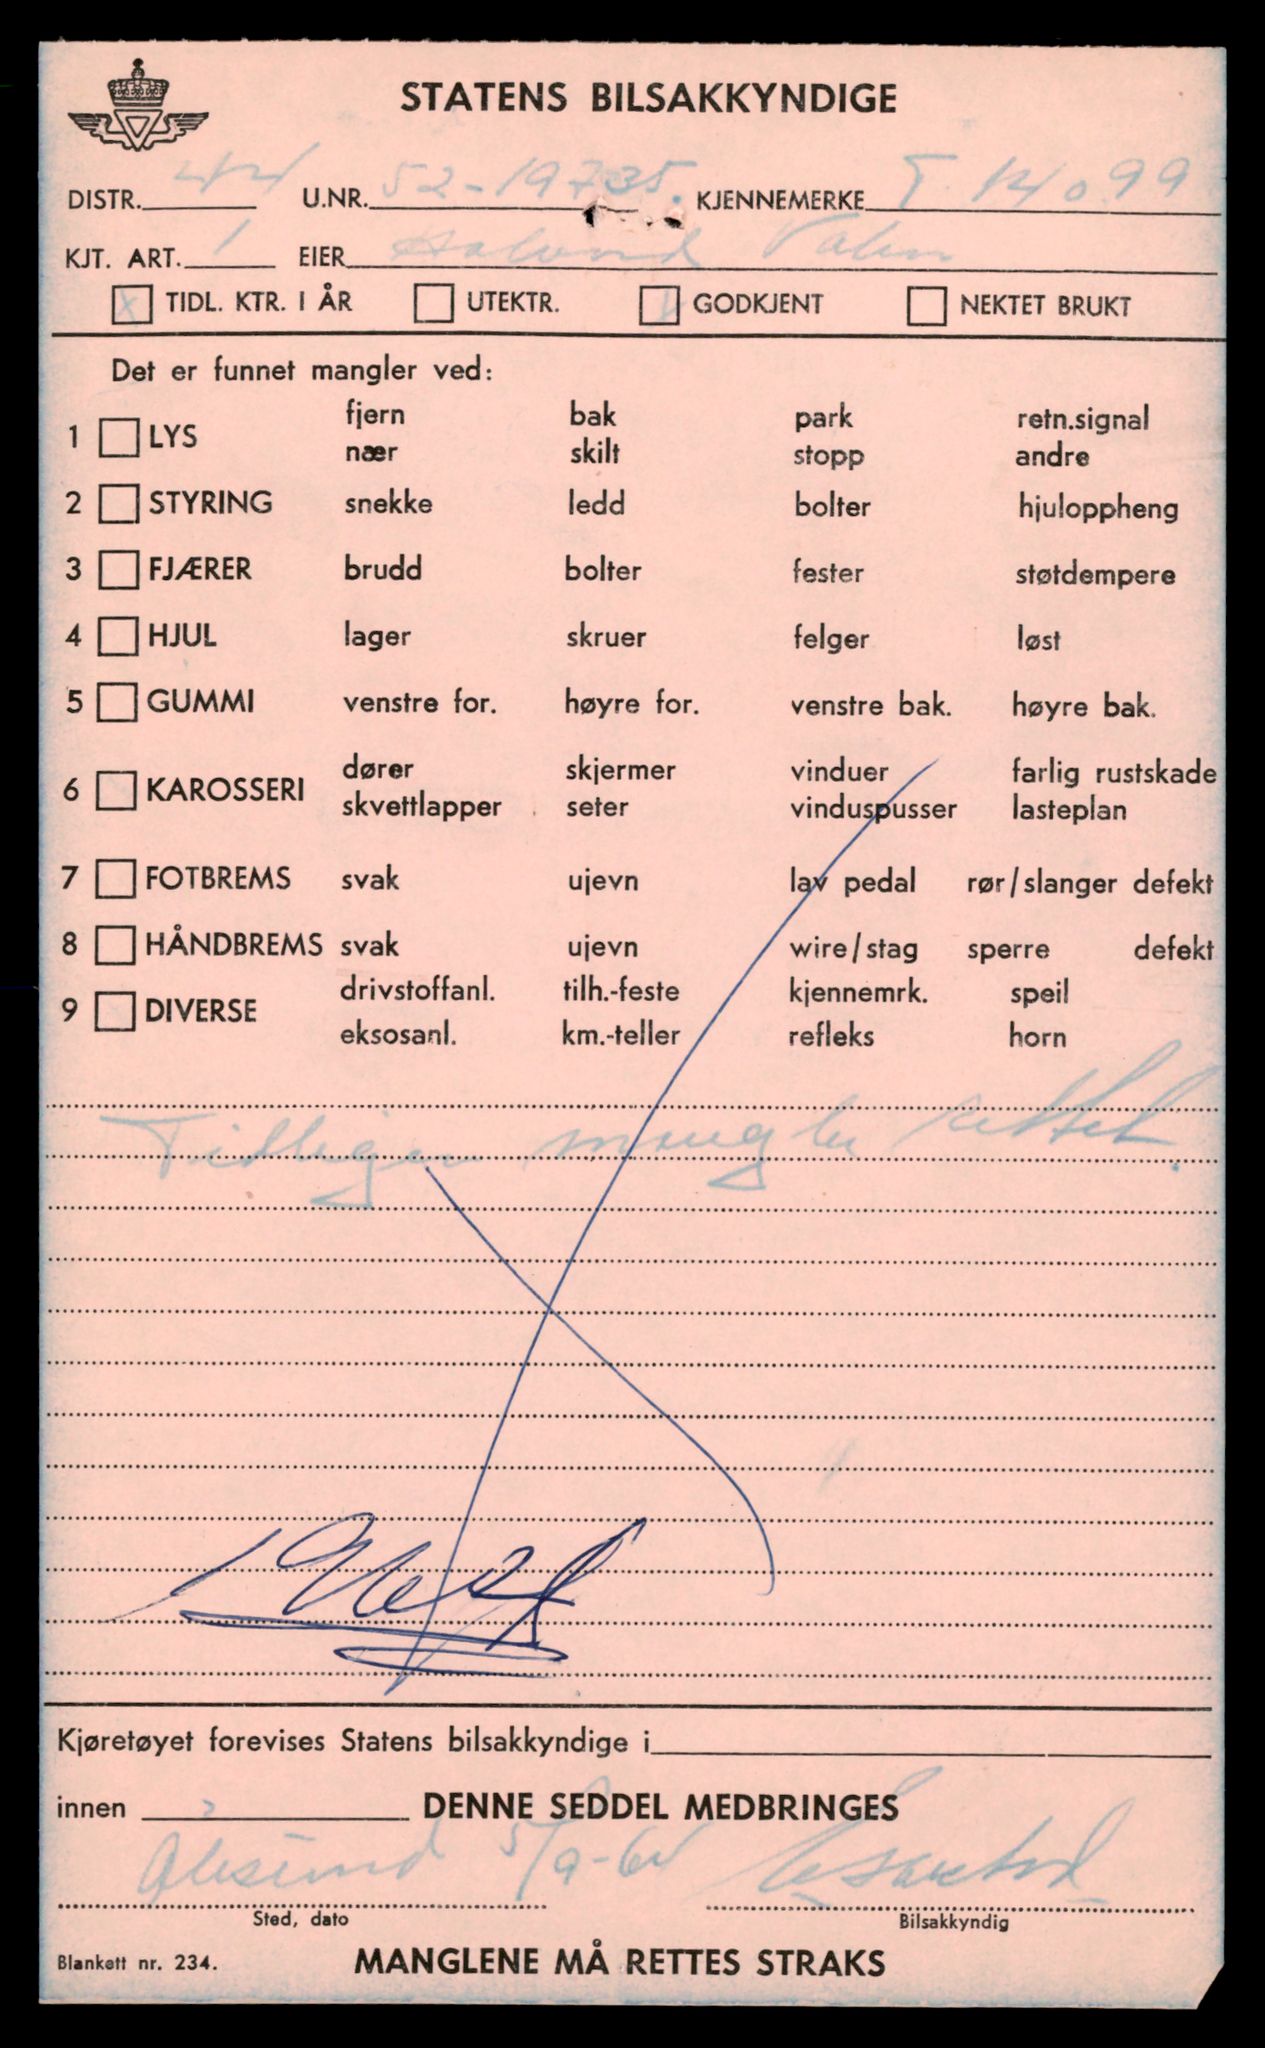 STATENS BILSAKKYNDIGE
DISTR. 44 U.NR. 52-19735. KJENNEMERKE T 14099
KJT. ART. 1 EIER Valen
x TIDL. KTR. I ÅR UTEKTR. GODKJENT NEKTET BRUKT
Det er funnet mangler ved:
fjern bak park retn.signal
1 LYS
nær skilt stopp andre
2 STYRING snekke ledd bolter hjuloppheng
3 FJÆRER brudd bolter fester støtdempere
4 HJUL lager skruer felger løst
5 GUMMI venstre for. høyre for. venstre bak. høyre bak.
dører skjermer vinduer farlig rustskade
6 KAROSSERI
skvettlapper seter vinduspusser lasteplan
7 FOTBREMS svak ujevn lav pedal rør/slanger defekt
8 HÅNDBREMS svak ujevn wire/stag sperre defekt
drivstoffanl. tilh.-feste kjennemrk. speil
9 DIVERSE
eksosanl. km.-teller refleks horn
Tidligere mangler rettet.
Kjøretøyet forevises Statens bilsakkyndige i
innen DENNE SEDDEL MEDBRINGES
Ålesund 5/9-64
Sted, dato Bilsakkyndig
Blankett nr. 234. MANGLENE MÅ RETTES STRAKS